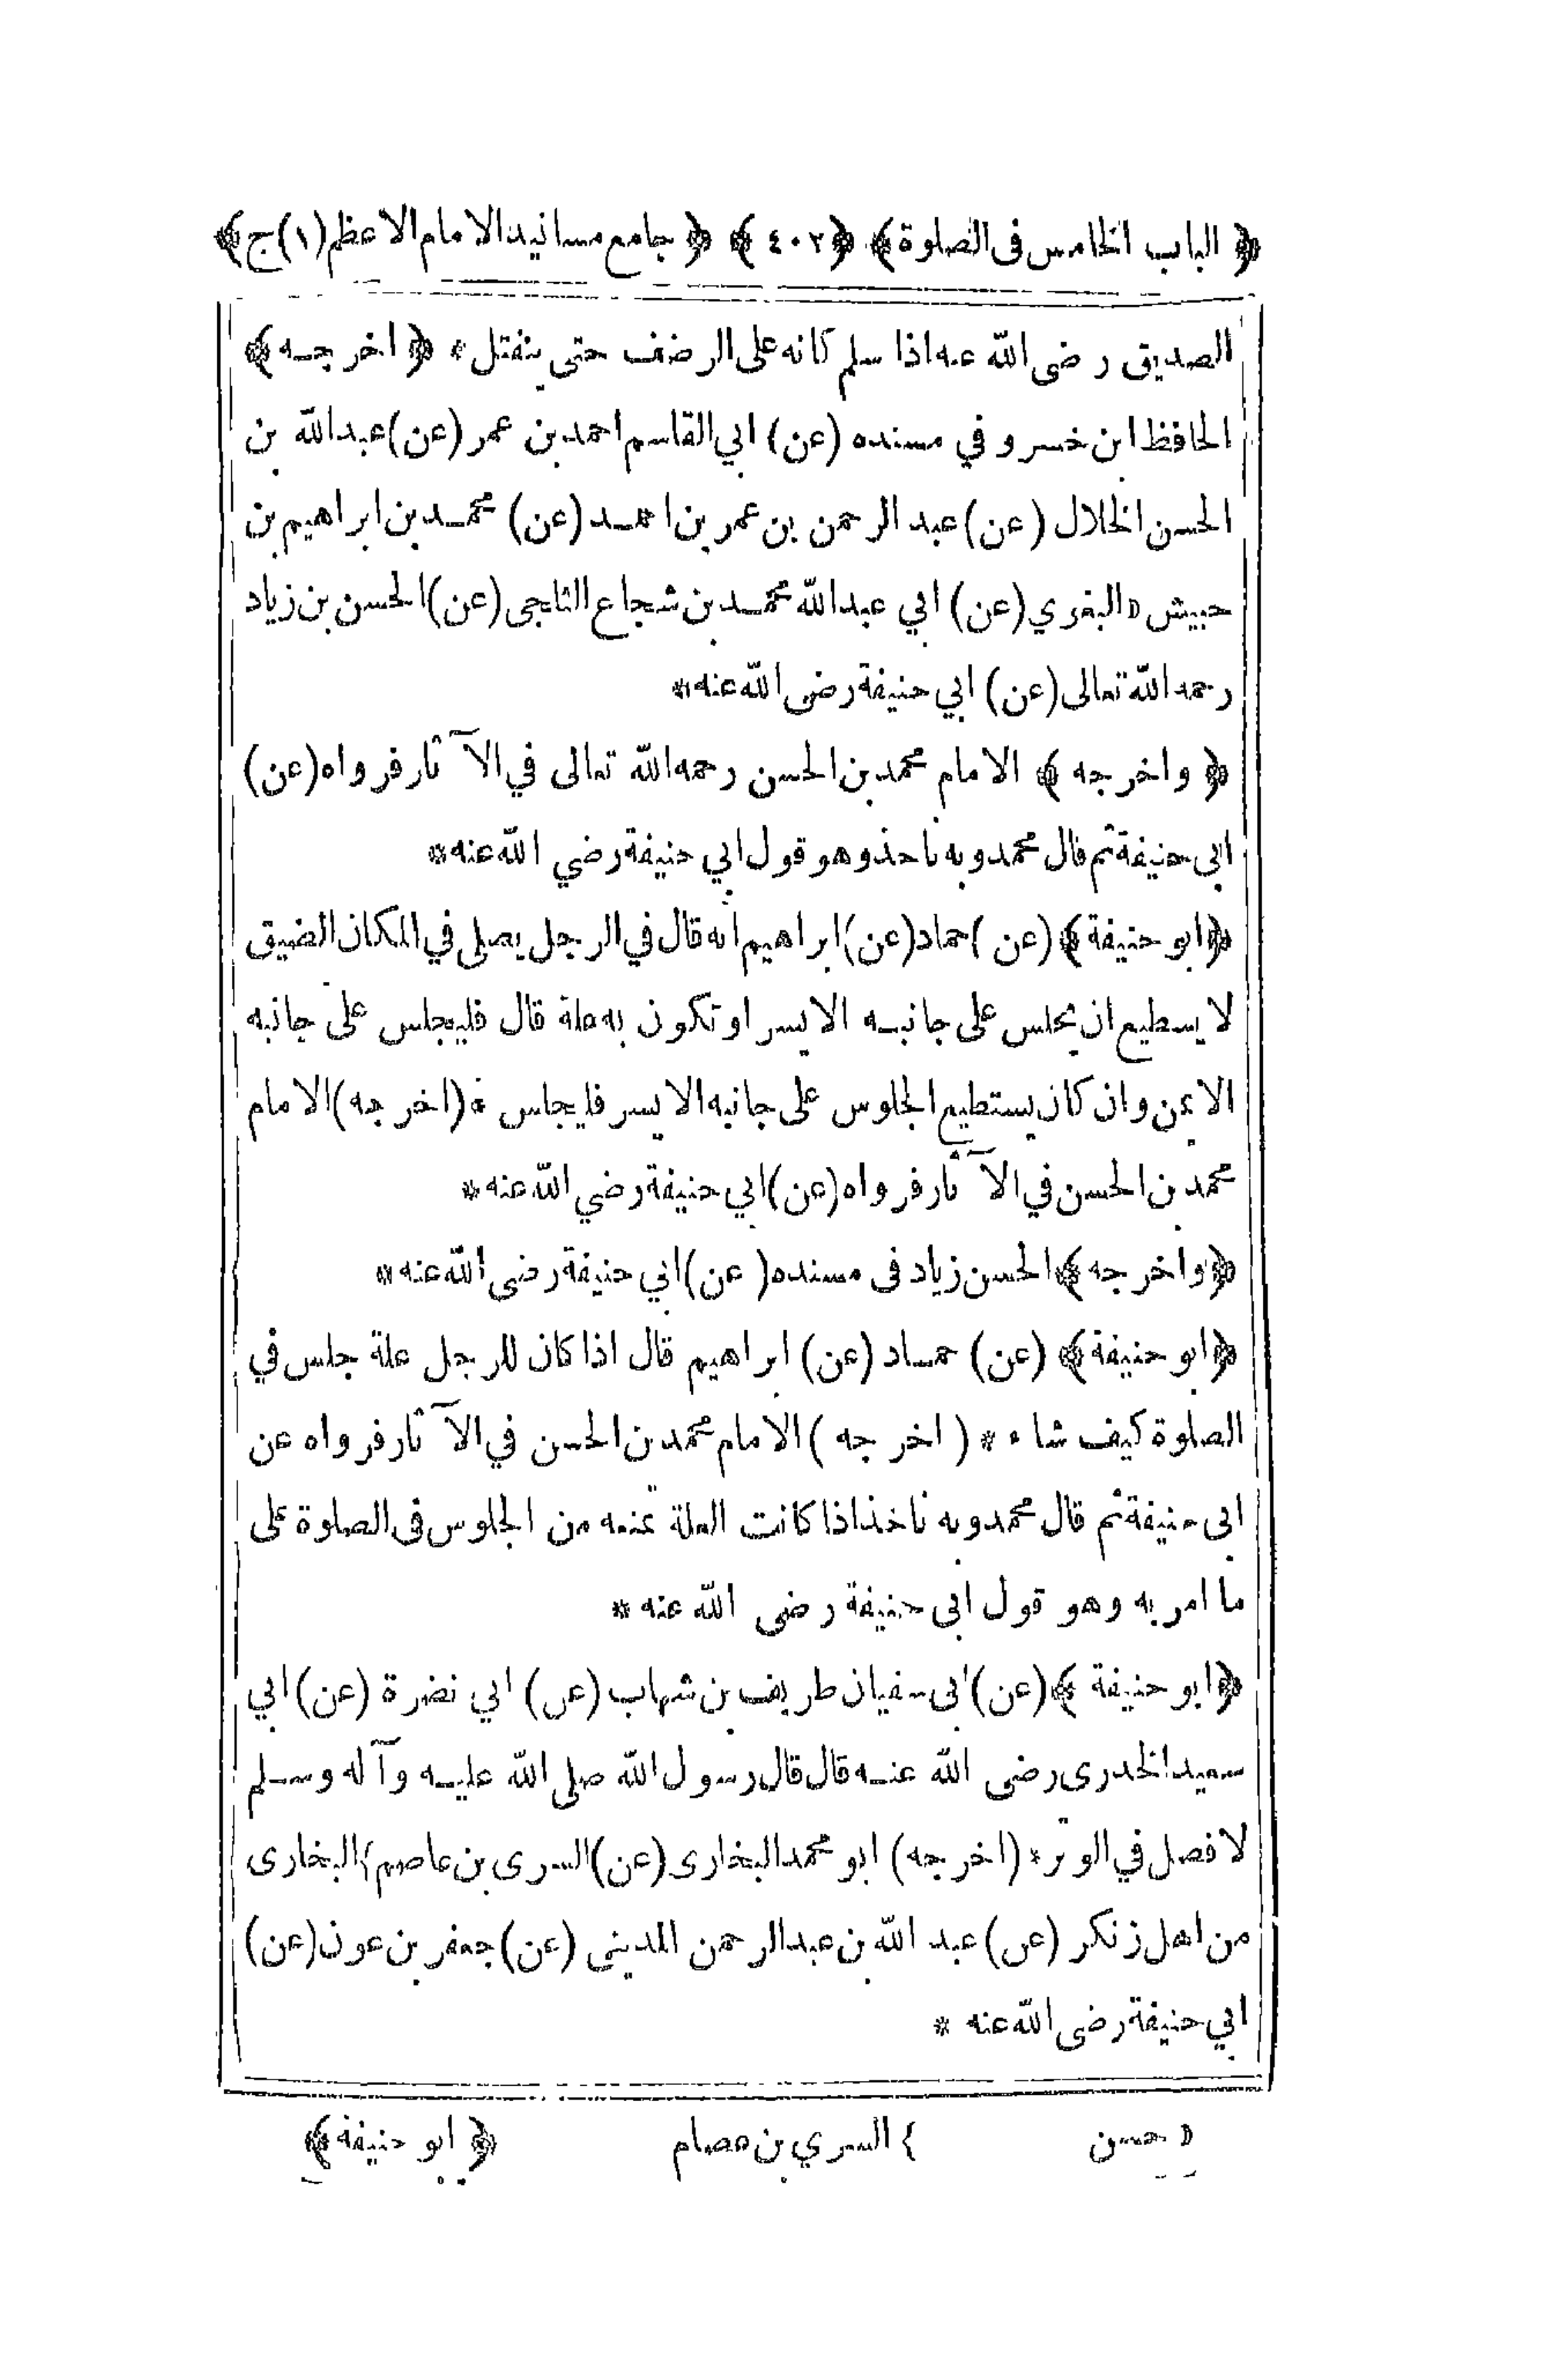 ﴿ الباب الخامس فى الصلوة ﴾ ﴿ ٤٠٢ ﴾ ﴿ جامع مسانيد الامام الاعظم (١) ج ﴾
الصديق رضى الله عنه اذا سلم كانه على الرضف حتى ينفتل * ﴿ اخرجه ﴾
الحافظ ابن خسرو في مسنده (عن) ابي القاسم احمد بن عمر (عن) عبد الله بن
الحسن الخلال (عن) عبد الرحمن بن عمر بن احمد (عن) محمد بن ابراهيم بن
حبيش د البغوي (عن) ابي عبد الله محمد بن شجاع الثلجى (عن) الحسن بن زياد
رحمه الله تعالى (عن) ابي حنيفة رضى الله عنه *
﴿ واخرجه ﴾ الامام محمد بن الحسن رحمه الله تعالى في الآثار فرواه (عن)
ابى حنيفة ثم قال محمد وبه ناخذ وهو قول ابي حنيفة رضي الله عنه *
﴿ ابو حنيفة ﴾ (عن) حماد (عن) ابراهيم انه قال في الرجل يصلى في المكان الضيق
لا يسطيع ان يجلس على جانبه الايسر او تكون به علة قال فليجلس على جانبه
الايمن وان كان يستطيع الجلوس على جانبه الايسر فليجلس * (اخرجه) الامام
محمد بن الحسن في الآثار فرواه (عن) ابي حنيفة رضي الله عنه *
﴿ واخرجه ﴾ الحسن زياد فى مسنده (عن) ابي حنيفة رضى الله عنه *
﴿ ابو حنيفة ﴾ (عن) حماد (عن) ابراهيم قال اذا كان للرجل علة جلس في
الصلوة كيف شاء * (اخرجه) الامام محمد بن الحسن في الآثار فرواه عن
ابى حنيفة ثم قال محمد وبه ناخذ اذا كانت العلة تمنعه من الجلوس فى الصلوة على
ما امر به وهو قول ابى حنيفة رضى الله عنه *
﴿ ابو حنيفة ﴾ (عن) ابى سفيان طريف بن شهاب (عن) ابي نضرة (عن) ابي
سعيد الخدرى رضى الله عنه قال قال رسول الله صلى الله عليه وآله وسلم
لا فصل في الوتر * (اخرجه) ابو محمد البخارى (عن) السرى بن عاصم } البخارى
من اهل زنكر (عن) عبد الله بن عبد الرحمن المدينى (عن) جعفر بن عون (عن)
ابي حنيفة رضى الله عنه *
د حسن } السري بن عصام ﴿ ابو حنيفة ﴾